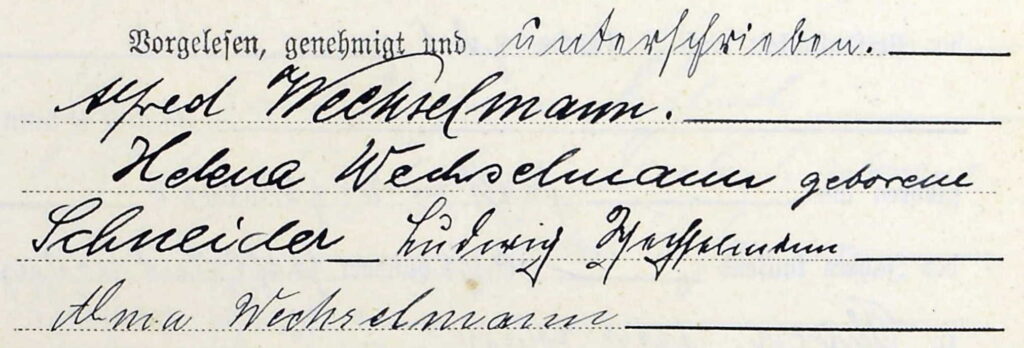 Vorgelesen, genehmigt und unterschrieben.
Alfred Wechselmann.
Helena Wechselmann geborene
Schneider Ludwig Wechselmann
Alma Wechselmann